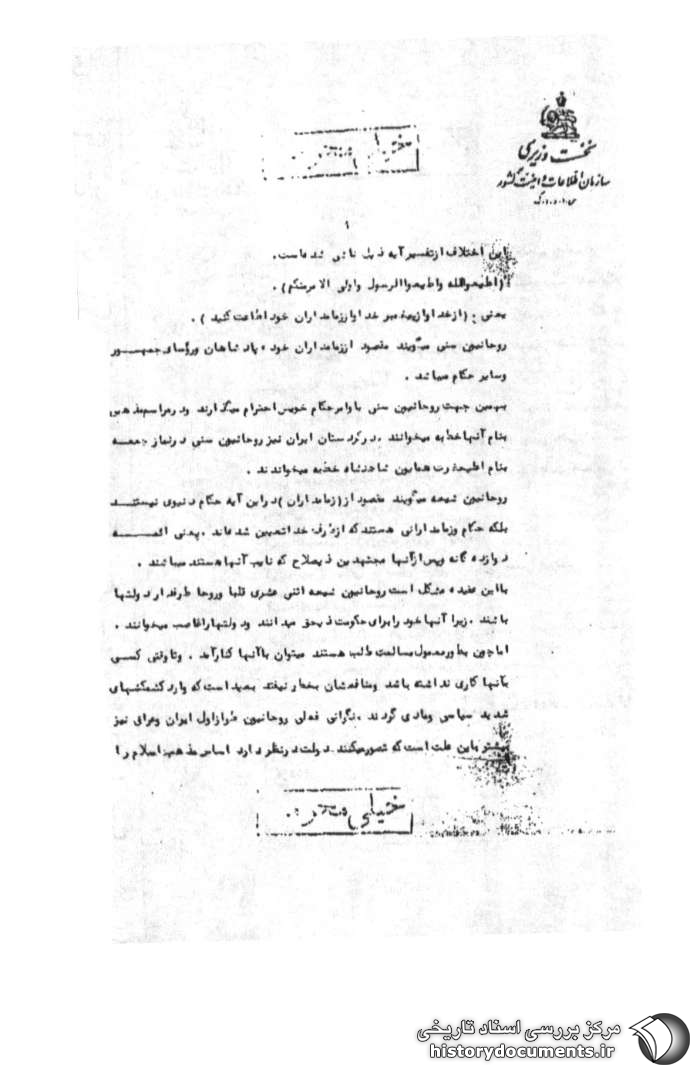 نخست وزیری
سازمان اطلاعات و امنیت کشور
س.ا.و.ا.ک
خیلی محرمانه
۹
این اختلاف از تفسیر آیه ذیل ناشی شده است.
(اطیعوالله واطیعواالرسول واولی الامرمنکم) .
یعنی : (از خدا و از پیغمبر خدا و از زمامداران خود اطاعت کنید ) .
روحانیون سنی میگویند مقصود از زمامداران خود ، پادشاهان و رؤسای جمهور
وسایر حکام میباشد .
بهمین جهت روحانیون سنی باوامر حکام خویش احترام میگذارند ودر مراسم مذهبی
بنام آنها خطبه میخوانند .در کردستان ایران نیز روحانیون سنی درنماز جمعه
بنام اعلیحضرت همایون شاهنشاه خطبه میخوانند .
روحانیون شیعه میگویند مقصود از (زمامداران )در این آیه حکام دنیوی نیستند
بلکه حکام وزمامدارانی هستند که از طرف خدا تعیین شده اند .یعنی ائمه
دوازده گانه وپس از آنها مجتهدین ذیصلاح که نایب آنها هستند میباشند .
بااین عقیده مشکل است روحانیون شیعه اثنی عشری قلبا وروحا طرفدار دولتها
باشند .زیرا آنها خود را برای حکومت ذیحق میدانند ودولتها راغاصب میخوانند .
اما چون بطور معمول مسالمت طلب هستند میتوان باآنها کنارآمد . وتاوقتی کسی
بآنها کاری نداشته باشد ومنافعشان بخطر نیفتد بعید است که وارد کشمکشهای
شدید سیاسی ومادی گردند .نگرانی فعلی روحانیون طراز اول ایران وعراق نیز
بیشتر باین علت است که تصور میکنند دولت در نظر دارد اساس مذهب اسلام را
خیلی محرمانه
مرکز بررسی اسناد تاریخی
historydocuments.ir